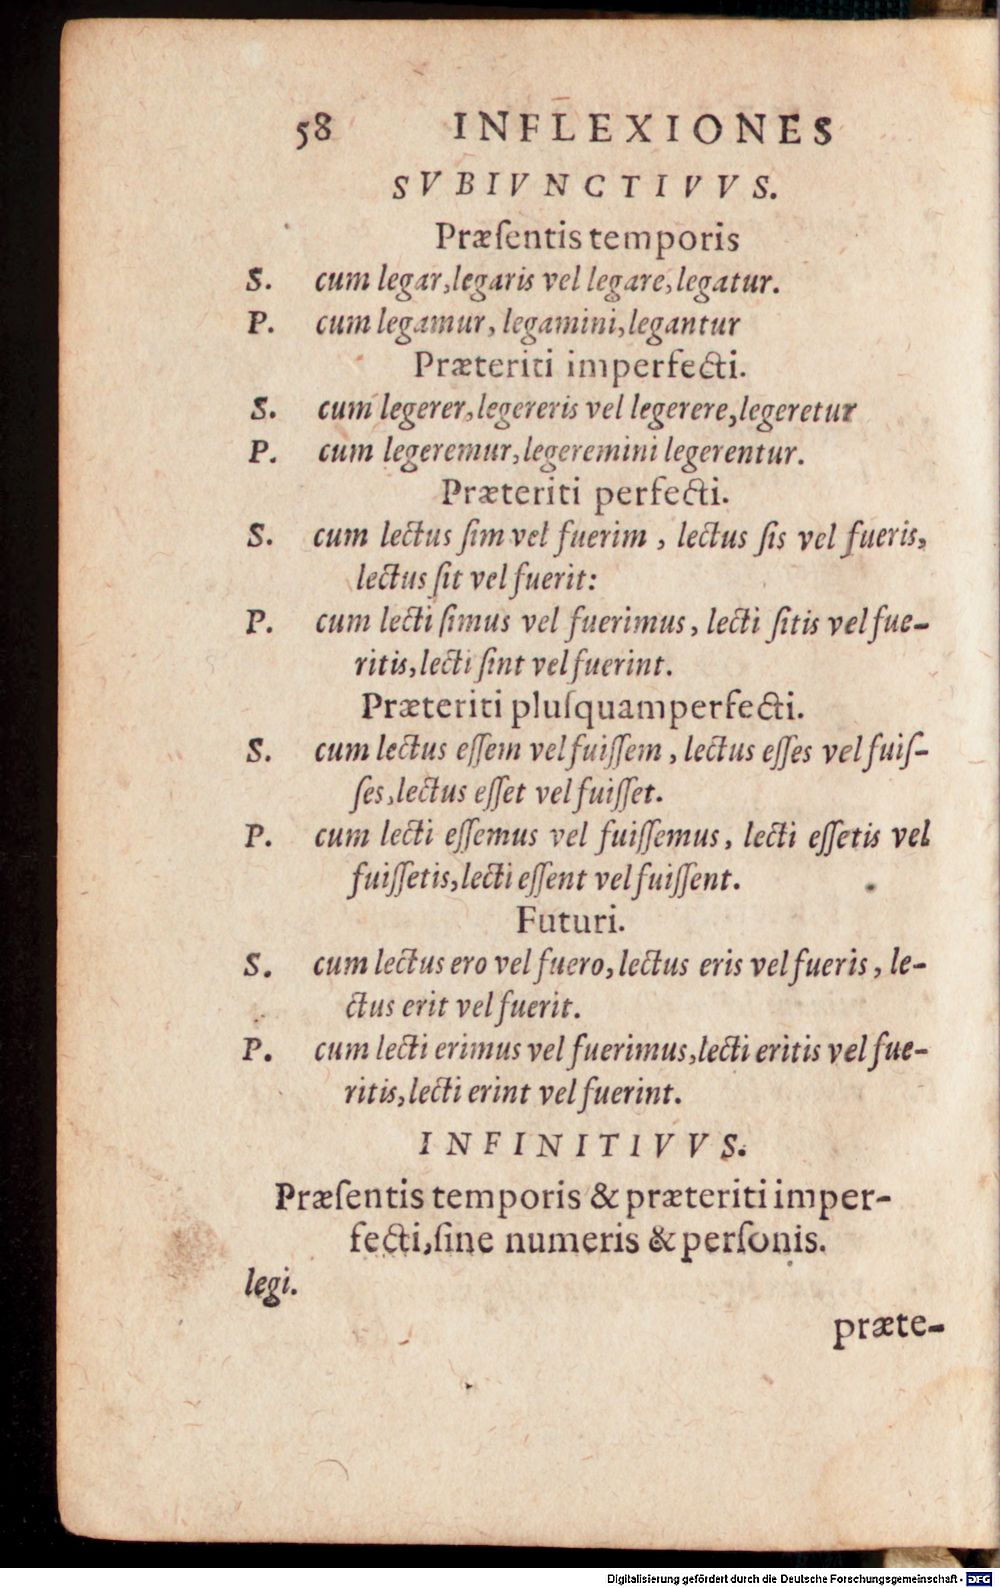 58 INFLEXIONES
SVBIVNCTIVVS.
Præſentis temporis
S. cum legar, legaris vel legare, legatur.
P. cum legamur, legamini, legantur
Præteriti imperfecti.
S. cum legerer, legereris vel legerere, legeretur
P. cum legeremur, legeremini legerentur.
Præteriti perfecti.
S. cum lectus ſim vel fuerim , lectus ſis vel fueris,
lectus ſit vel fuerit:
P. cum lecti ſimus vel fuerimus , lecti ſitis vel fue-
ritis, lecti ſint vel fuerint.
Præteriti pluſquamperfecti.
S. cum lectus eſſem vel fuiſſem , lectus eſſes vel fuiſ-
ſes, lectus eſſet vel fuiſſet.
P. cum lecti eſſemus vel fuiſſemus, lecti eſſetis vel
fuiſſetis, lecti eſſent vel fuiſſent.
Futuri.
S. cum lectus ero vel fuero, lectus eris vel fueris , le-
ctus erit vel fuerit.
P. cum lecti erimus vel fuerimus, lecti eritis vel fue-
ritis, lecti erint vel fuerint.
INFINITIVVS.
Præſentis temporis & præteriti imper-
fecti, ſine numeris & perſonis.
legi.
præte-
Digitalisierung gefördert durch die Deutsche Forschungsgemeinschaft - DFG